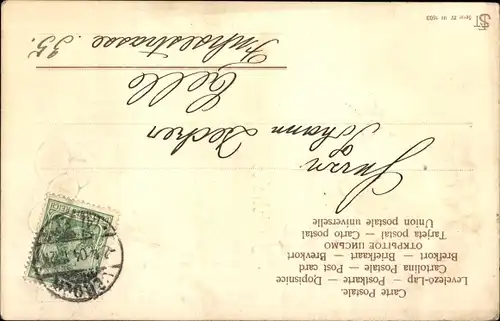 Carte Postale.
Levelező-Lap — Postkarte — Dopisnice
Cartolina Postale — Post card
Brefkort — Briefkaart — Brevkort
ОТКРЫТОЕ ПИСЬМО
Tarjeta postal — Carto postal
Union postale universelle
Herrn
Johann Decker
Celle
35.
ST
Serie